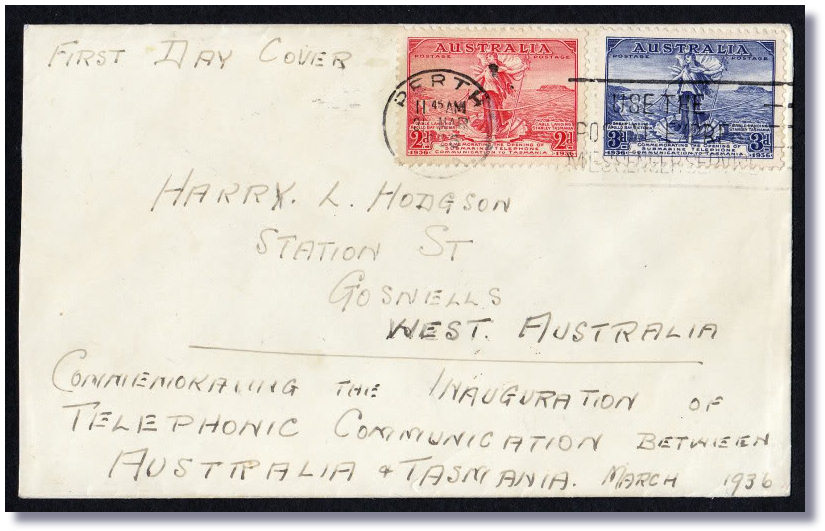 First Day Cover
AUSTRALIA
POSTAGE POSTAGE
2d 2d
COMMEMORATING THE OPENING OF
SUBMARINE TELEPHONE
1936 COMMUNICATION TO TASMANIA 1936
AUSTRALIA
POSTAGE POSTAGE
CABLE LANDING
STANLEY TASMANIA
3d 3d
COMMEMORATING THE OPENING OF
SUBMARINE TELEPHONE
1936 COMMUNICATION TO TASMANIA 1936
PERTH
11 45 AM
MAR
USE THE
Harry. L. Hodgson
Station St
Gosnells
West. Australia
Commemorating the Inauguration of
Telephonic Communication Between
Australia & Tasmania. March 1936